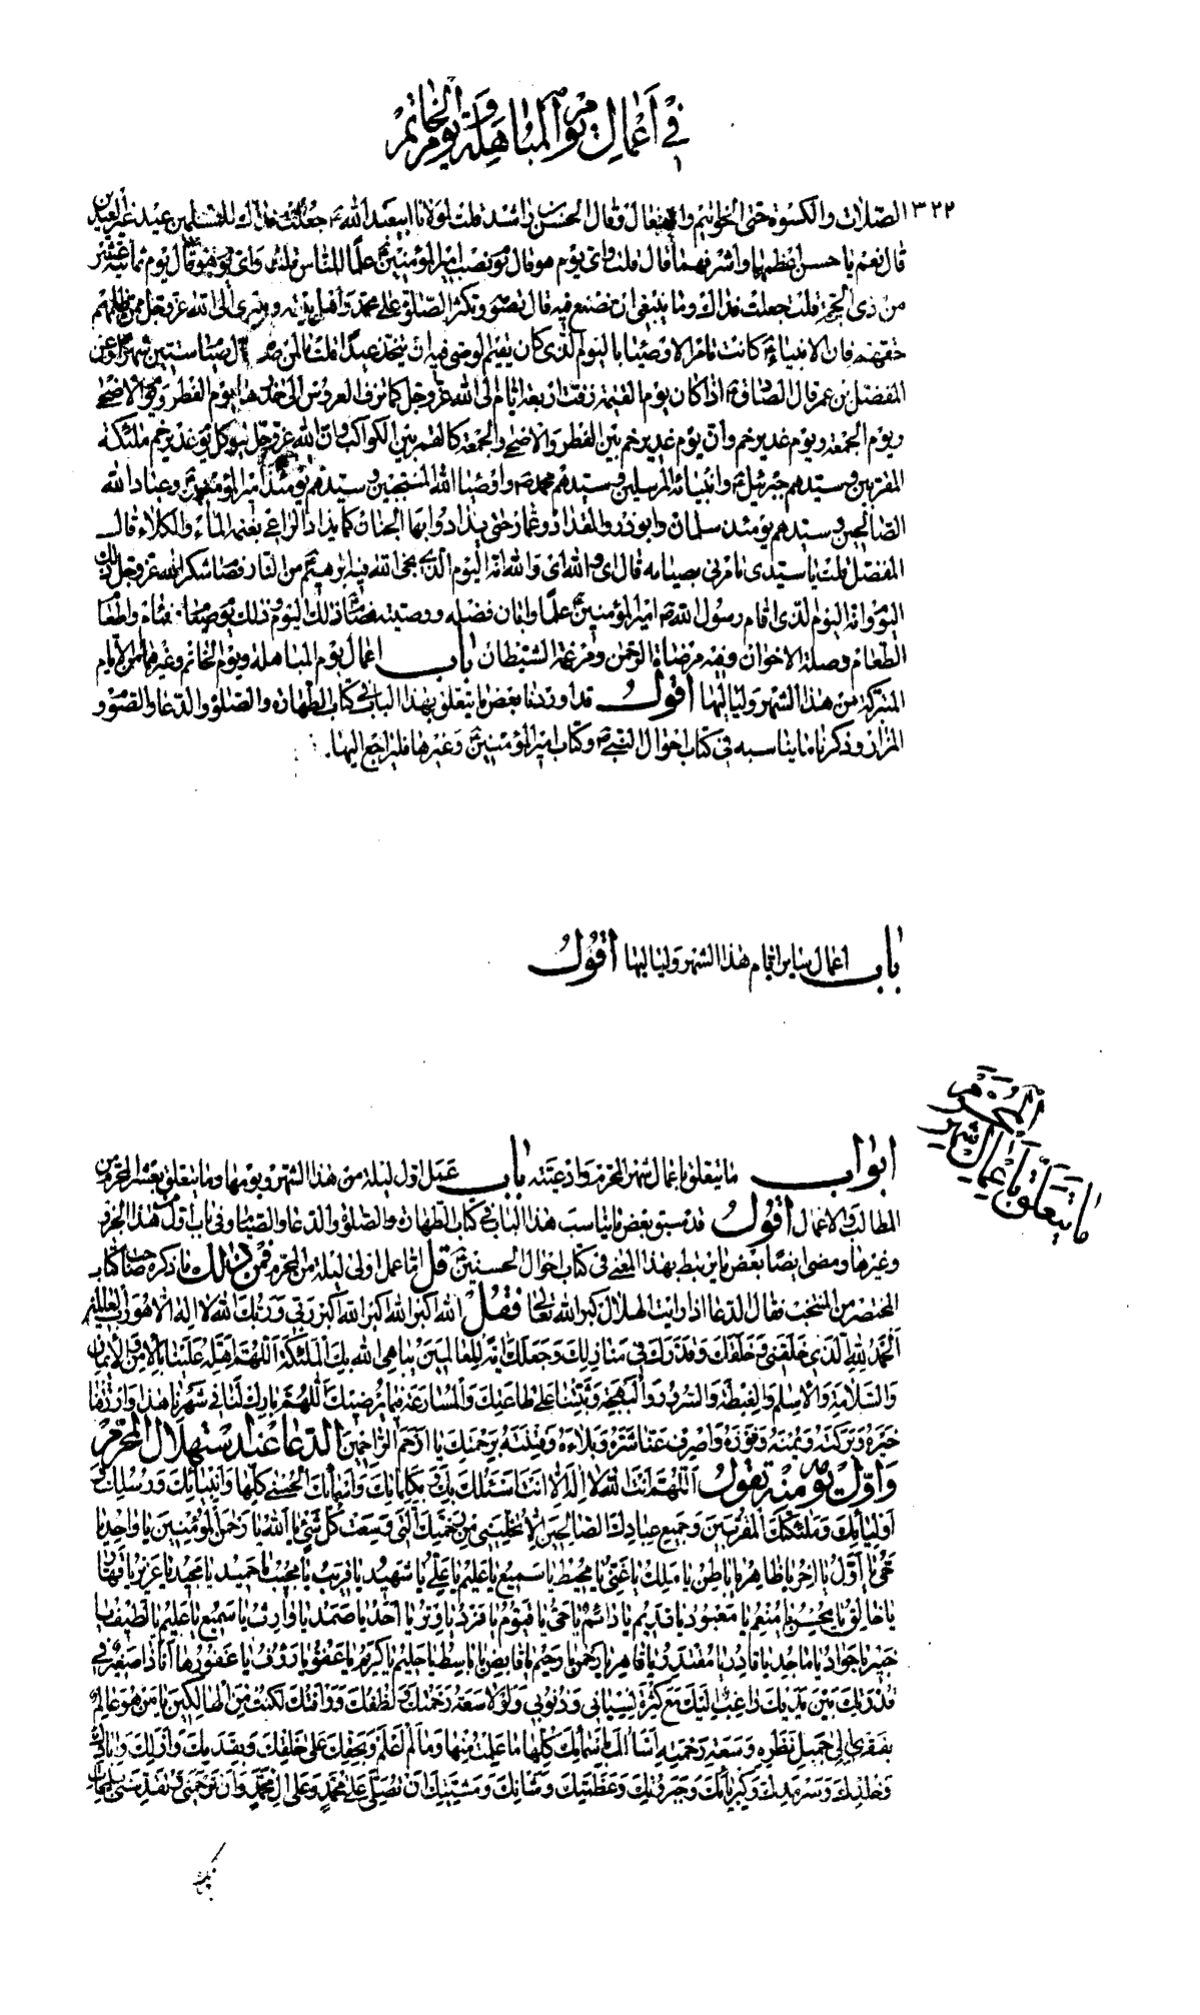 في أعمال يوم المباهلة ويوم الخاتم
١٣٢٢
الصلات والكسوة حتى الخواتيم والنعال وقال الحسن بن راشد قلت لمولانا ابيعبد الله ع جعلت فداك للمسلمين عيد غير العيدين
قال نعم يا حسن اعظمها واشرفهما قال قلت واى يوم هو قال يوم نصب امير المؤمنين ع علما للناس قلت واى يوم هو قال يوم ثمانية عشر
من ذى الحجة قلت جعلت فداك وما ينبغى ان نصنع فيه قال تصوم وتكثر الصلوة على محمد واهل بيته وتتبرى الى الله عز وجل ممن ظلمهم
حقهم فان الانبياء ع كانت تامر الاوصياء باليوم الذى كان يقيم الوصى فيه ان يتخذ عيدا قلت ما لمن صامه قال صيام ستين شهرا وعن
المفضل بن عمر قال الصادق ع اذا كان يوم القيمة زفت اربعة ايام الى الله عز وجل كما تزف العروس الى خدرها يوم الفطر ويوم الاضحى
ويوم الجمعة ويوم غدير خم وان يوم غدير خم بين الفطر والاضحى والجمعة كالقمر بين الكواكب وان الله عز وجل ليوكل يوم غدير خم ملئكته
المقربين وسيدهم جبرئيل ع وانبيائه المرسلين وسيدهم محمد ص واوصياء الله المنتجبين وسيدهم يومئذ امير المؤمنين ع وعباد الله
الصالحين وسيدهم يومئذ سلمان وابوذر والمقداد وعمار حتى يذادوا بها الجنان كما يذاد الراعى بغنمه الماء والكلاء قال
المفضل قلت يا سيدى تامرنى بصيامه قال اى والله اى والله انه اليوم الذى نجى الله فيه ابرهيم ع من النار فصام شكرا لله عز وجل ذلك
اليوم وانه اليوم الذى اقام رسول الله ص امير المؤمنين ع علما وابان فضله ووصيته فصام ذلك اليوم وذلك يوم صيام وقيام واطعام
الطعام وصلة الاخوان وفيه مرضاة الرحمن ومرغمة الشيطان باب اعمال يوم المباهلة ويوم الخاتم وغيرهما من الايام
المتبركة من هذا الشهر ولياليها اقول قد اوردنا بعض ما يتعلق بهذا الباب في كتاب الطهارة والصلوة والدعا والصوم و
المزار وذكرنا ما يناسبه في كتاب احوال النبي ص وكتاب امير المؤمنين ع وغيرها فليراجع اليها.
باب اعمال ساير ايام هذا الشهر ولياليها اقول
ما يتعلق باعمال شهر
المحرم
ابواب ما يتعلق باعمال شهر المحرم وادعيته باب عمل اول ليلة من هذا الشهر ويومها وما يتعلق بعشر المحرم من
المطالب والاعمال اقول قد سبق بعض ما يناسب هذا الباب في كتاب الطهارة والصلوة والدعا والصيام وفي باب اول من هذا الجزء
وغيرها ومضى ايضا بعض ما يرتبط بهذا المعنى في كتاب احوال الحسنين ع قل اما عمل اولى ليلة من المحرم فمن ذلك ما ذكره صاحب كتاب
المختصر من المنتخب فقال الدعا اذا رايت الهلال كبر الله تعالى فقل الله اكبر الله اكبر الله اكبر ربي وربك الله لا اله الا هو رب العالمين
الحمد لله الذى خلقني وخلقك وقدرك في منازلك وجعلك آية للعالمين يباهى الله بك الملئكة اللهم اهله علينا بالامن والايمان
والسلامة والاسلام والغبطة والسرور والبهجة وثبتنا على طاعتك والمسارعة فيما يرضيك اللهم بارك لنا في شهرنا هذا وارزقنا
خيره وبركته ويمنه وفوزه واصرف عنا شره وبلاءه وفتنته برحمتك يا ارحم الراحمين الدعا عند استهلال المحرم
واول يوم منه تقول اللهم انت الله لا اله الا انت اسئلك بك وبكلماتك واسمائك الحسنى كلها وانبيائك ورسلك و
اوليائك وملئكتك المقربين وجميع عبادك الصالحين لا تخلني من رحمتك التى وسعت كل شئ يا الله يا رحمن المؤمنين يا واحد يا
حى يا اول يا اخر يا ظاهر يا باطن يا ملك يا غنى يا محيط يا سميع يا عليم يا على يا شهيد يا قريب يا مجيب يا حميد يا مجيد يا عزيز يا قهار
يا خالق يا محسن يا منعم يا معبود يا قديم يا دائم يا حى يا قيوم يا فرد يا وتر يا احد يا صمد يا وارث يا سميع يا عليم يا لطيف يا
خبير يا جواد يا ماجد يا قادر يا مقتدر يا قاهر يا رحمن يا رحيم يا قابض يا باسط يا حليم يا كريم يا عفو يا رؤف يا غفور ها انا ذا صغير في
قدرتك بين يديك راغب اليك مع كثرة نسياني وذنوبي ولولا سعة رحمتك ولطفك ورأفتك لكنت من الهالكين يا من هو عالم
بفقري الى جميل نظره وسعة رحمته اسألك باسمائك كلها ما علمت منها وما لم اعلم وبحقك على خلقك وبقدمك وازلك وابادك
وخلدك وسرمدك وكبريائك وجبروتك وعظمتك وشانك ومشيتك ان تصلى على محمد وعلى ال محمد وان ترحمني وتقدسني بلمحات